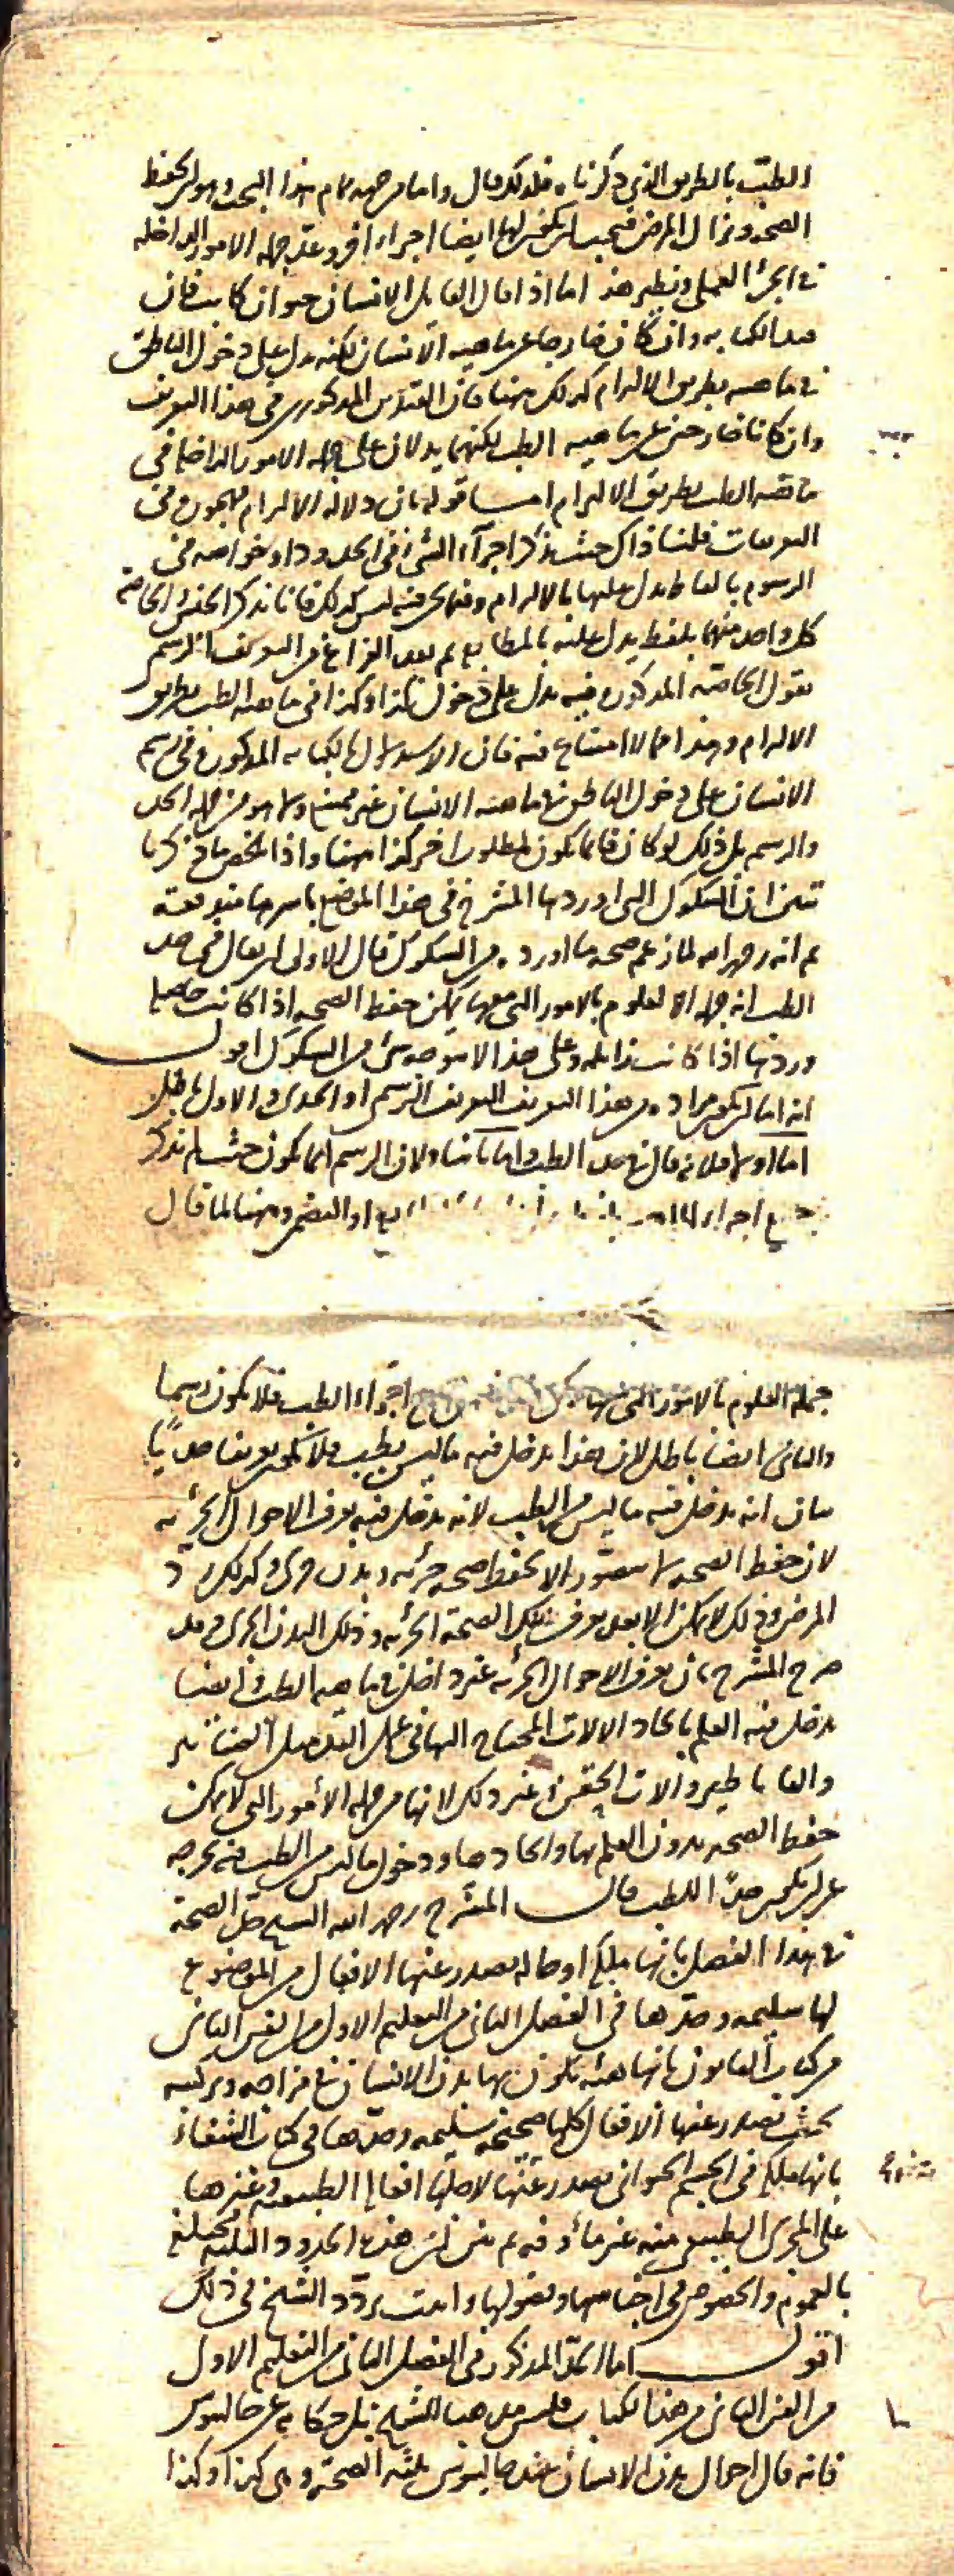 الطب بالطريق الذي ذكرناه فلذلك قال واما من جهة تمام هذا البحث وهو ان يحفظ
الصحة ويزال المرض فيجب ان يكون لها ايضا اجزاء اخر وعد جملة الامور الداخلة
في الجزء العملي ونظير هذا اما اذا قال القايل الانسان حيوان كاتب فان
مبدا الكتابة وان كان خارجا عن ماهية الانسان لكنه يدل على دخول الناطق
في ماهيته بطريق الالتزام كذلك ههنا فان القيدين المذكورين في هذا التعريف
وان كانا خارجين عن ماهية الطب لكنهما يدلان على جملة الامور الداخلة في
ماهية الطب بطريق الالتزام اما قوله بان دلالة الالتزام مهجورة في
التعريفات قلنا ذاك حيث يذكر اجزاء الشئ في الحدود او خواصه في
الرسوم بالفاظ يدل عليها بالالتزام وفيما نحن فيه ليس كذلك فانا نذكر الجنس والخاصة
كل واحد منهما بلفظ يدل عليه بالمطابقة ثم بعد الفراغ من التعريف الرسمي
نقول الخاصة المذكورة فيه يدل على دخول كذا وكذا في ماهية الطب بطريق
الالتزام وهذا مما لا امتناع فيه فان الاستدلال بالكتابة المذكورة في رسم
الانسان على دخول الناطق في ماهية الانسان غير ممتنع ولا هو من جملة الحد
والرسم بل ذلك لو كان فانما يكون لمطلوب اخر كذا ههنا واذا تلخص ما ذكرنا
تبين ان الشكوك التي اوردها المشرح في هذا الموضع باسرها مندفعة
ثم انه رحمه الله لما زعم صحة ما اورده من الشكوك قال الاولى ان يقال في حد
الطب انه جملة العلوم بالامور التي معها يمكن حفظ الصحة اذا كانت حاصلة
وردها اذا كانت زايلة وعلى هذا لا يتوجه شئ من الشكوك اقول
انه اما ان يكون مراده من هذا التعريف التعريف الرسمي او الحدي والاول باطل
اما اولا فلانه قال في حد الطب واما ثانيا فلان الرسم انما يكون حيث لم نذكر
جميع اجزاء الماهية او التضمن وههنا لما قال
جملة العلوم بالامور التي معها يمكن اجزاء الطب فلا يكون رسميا
والثاني ايضا باطل لان هذا يدخل فيه ما ليس بطب فلا يكون تعريفا حديا
بيان انه يدخل فيه ما ليس من الطب لانه يدخل فيه معرفة الاحوال الجزئية
لان حفظ الصحة لا يتصور الا بحفظ صحة جزئية وبدن جزئي وكذلك رد
المرض وذلك لا يمكن الا بعد معرفة تلك الصحة الجزئية وذلك البدن الجزئي وقد
صرح المشرح بان معرفة الاحوال الجزئية غير داخلة في ماهية الطب وايضا
يدخل فيه العلم بايجاد الالات المحتاج اليها في عمل اليد مثل الصنانير
والقاثاطير والات الحقن وغير ذلك لانها من جملة الامور التي لا يمكن
حفظ الصحة بدون العلم بها وايجادها ودخول ما ليس من الطب فيه يخرجه
عن ان يكون حدا للطب قال المشرح رحمه الله الشيخ حد الصحة
في هذا الفصل بانها ملكة او حالة يصدر عنها الافعال من الموضوع
لها سليمة وحدها في الفصل الثاني من التعليم الاول من الفن الثاني
من كتاب القانون بانها هيئة يكون بها بدن الانسان في مزاجه وتركيبه
بحيث يصدر عنها الافعال كلها صحيحة سليمة وحدها في كتاب الشفاء
بانها ملكة في الجسم الحيواني يصدر عنها لاجلها افعاله الطبيعية وغيرها
على المجرى الطبيعي منه غير مأوفة ثم بين ان هذه الحدود الثلثة مختلفة
بالعموم والخصوص في اجناسها وفصولها واثبت تردد الشيخ في ذلك
اقول اما الحد المذكور في الفصل الثاني من التعليم الاول
من الفن الثاني من هذا الكتاب فليس مذهبا للشيخ بل حكاية عن جالينوس
فانه قال احوال بدن الانسان عند جالينوس ثلثة الصحة وهي كذا وكذا